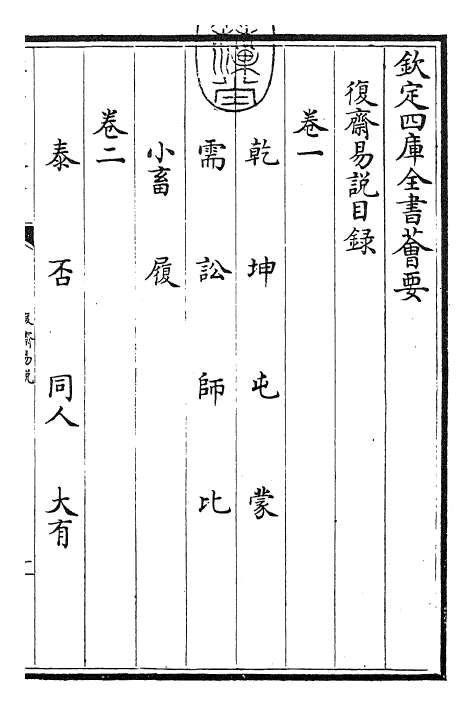 欽定四庫全書薈要
復齋易說目錄
卷一
乾 坤 屯 蒙
需 訟 師 比
小畜 履
卷二
泰 否 同人 大有
復齋易說